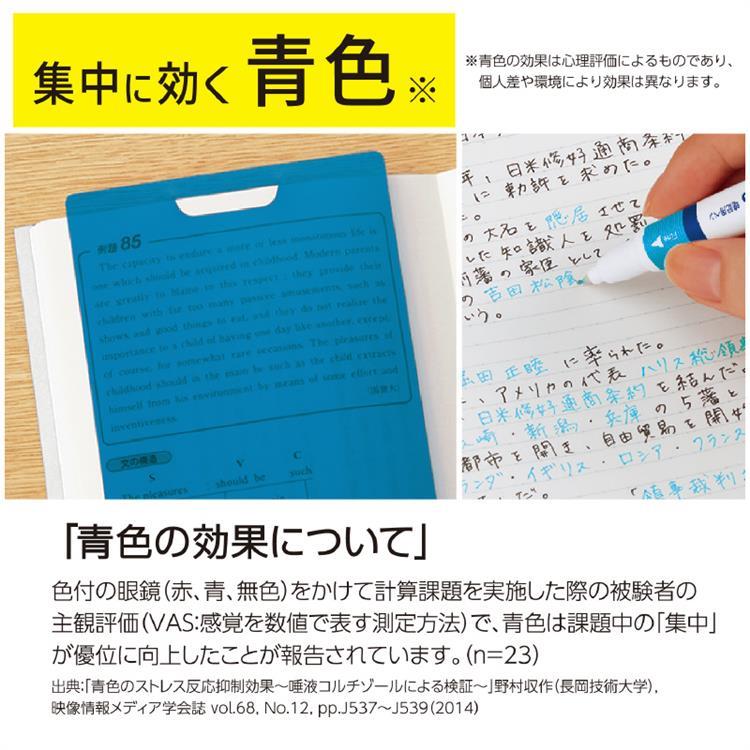 集中に効く 青色※
※青色の効果は心理評価によるものであり、
個人差や環境により効果は異なります。
例題 85
The capacity to endure a more or less monotonous life is
one which should be acquired in childhood. Modern parents
are greatly to blame in this respect; they provide their
children with far too many passive amusements, such as
shows and good things to eat, and they do not realize the
importance to a child of having one day like another, except,
of course, for somewhat rare occasions. The pleasures of
childhood should in the main be such as the child extracts
himself from his environment by means of some effort and
inventiveness.
文の構造
S V C
The pleasures should be such
、日米修好通商条約
に勅許を求めた。
の大名を隠居させて
した知識人を処罰
の家臣として
の吉田松陰
いう。
堀田正睦に率られた。
、アメリカの代表ハリス総領事
日米修好通商条約を結んだ
崎・新潟・兵庫の5港と
都市を開き、自由貿易を開始
ランダ・イギリス・ロシア・フランス
た。「領事裁判
「青色の効果について」
色付の眼鏡（赤、青、無色）をかけて計算課題を実施した際の被験者の
主観評価（VAS：感覚を数値で表す測定方法）で、青色は課題中の「集中」
が優位に向上したことが報告されています。（n=23）
出典：「青色のストレス反応抑制効果～唾液コルチゾールによる検証～」野村収作（長岡技術大学）,
映像情報メディア学会誌 vol.68, No.12, pp.J537～J539（2014）